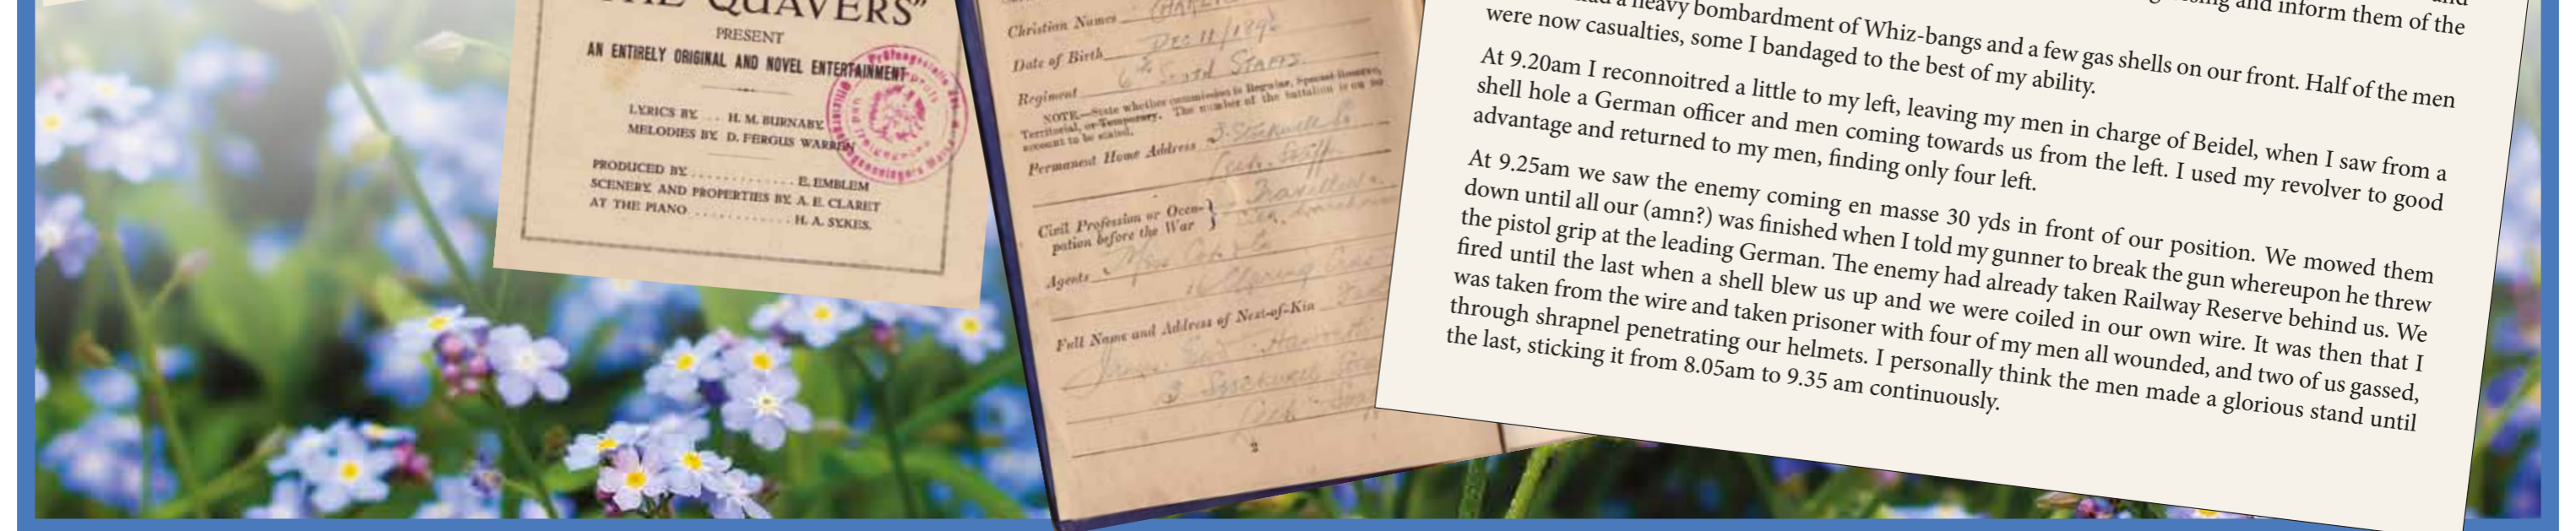 THE QUAVERS"
PRESENT
AN ENTIRELY ORIGINAL AND NOVEL ENTERTAINMENT
LYRICS BY .. H. M. BURNABY
MELODIES BY D. FERGUS WARREN
PRODUCED BY ............. E. EMBLEM
SCENERY AND PROPERTIES BY A. E. CLARET
AT THE PIANO ........... H. A. SYKES.
Christian Names
Date of Birth Dec 11/189
Regiment 6th South Staffs.
NOTE.—State whether commission is Regular, Special Reserve,
Territorial, or Temporary. The number of the battalion is on no
account to be stated.
Permanent Home Address
Civil Profession or Occu-
pation before the War
Agents
Full Name and Address of Next-of-Kin
2
and inform them of the
had a heavy bombardment of Whiz-bangs and a few gas shells on our front. Half of the men
were now casualties, some I bandaged to the best of my ability.
At 9.20am I reconnoitred a little to my left, leaving my men in charge of Beidel, when I saw from a
shell hole a German officer and men coming towards us from the left. I used my revolver to good
advantage and returned to my men, finding only four left.
At 9.25am we saw the enemy coming en masse 30 yds in front of our position. We mowed them
down until all our (amn?) was finished when I told my gunner to break the gun whereupon he threw
the pistol grip at the leading German. The enemy had already taken Railway Reserve behind us. We
fired until the last when a shell blew us up and we were coiled in our own wire. It was then that I
was taken from the wire and taken prisoner with four of my men all wounded, and two of us gassed,
through shrapnel penetrating our helmets. I personally think the men made a glorious stand until
the last, sticking it from 8.05am to 9.35 am continuously.